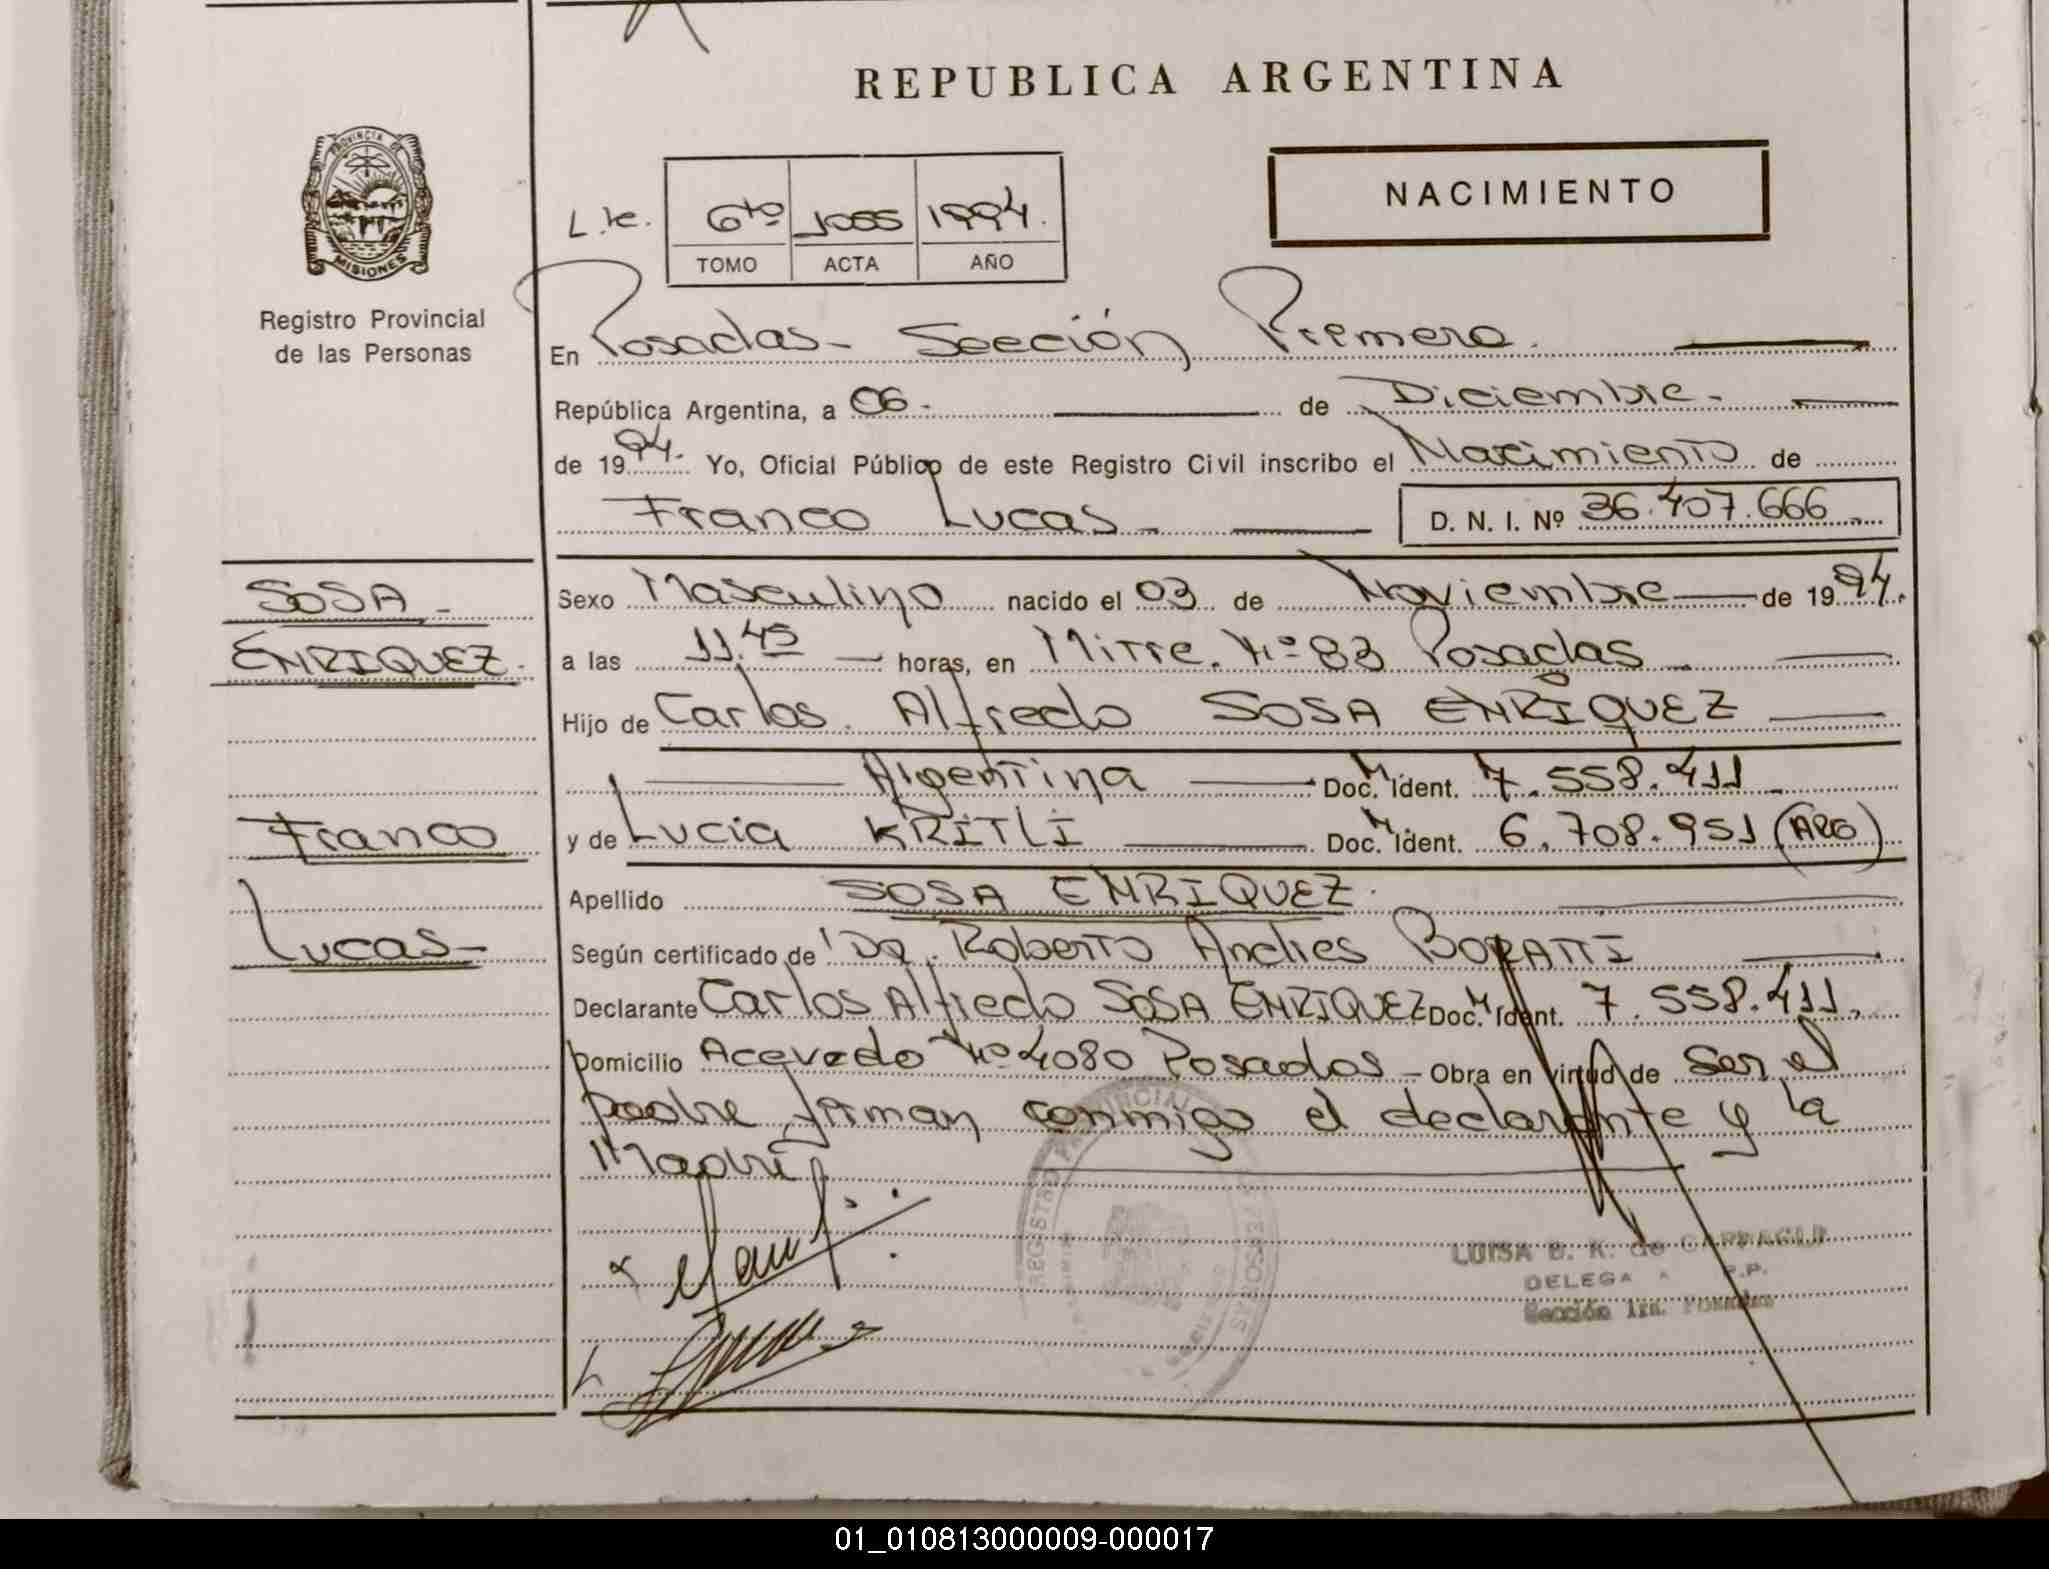 REPUBLICA ARGENTINA
PROVINCIA DE
MISIONES
Registro Provincial
de las Personas
NACIMIENTO
6to 1994.
TOMO ACTA AÑO
En Posadas - Sección Primera.
República Argentina, a 06. de Diciembre.
de 1994. Yo, Oficial Público de este Registro Civil inscribo el Nacimiento de
Franco Lucas - D. N. I. Nº 36.407.666
SOSA -
ENRIQUEZ.
Franco
Lucas -
Sexo Masculino nacido el 03 de Noviembre de 1994.
a las 11.45 horas, en Mitre. Nº 83 Posadas
Hijo de Carlos. Alfredo SOSA ENRIQUEZ
Argentina Doc. M Ident. 7.558.411
y de Lucia KRITLI Doc. M Ident. 6.708.951 (ARG)
Apellido SOSA ENRIQUEZ.
Según certificado de Dr. Roberto Andres BORATTI
Declarante Carlos Alfredo SOSA ENRIQUEZ Doc. M Ident. 7.558.411.
Domicilio Acevedo Nº 4080 Posadas - Obra en virtud de Ser el
padre firman conmigo el declarante y la
Madre
LUISA B. K. de
DELEGA R.P.P.
Sección 1ra. Posadas
01_010813000009-000017